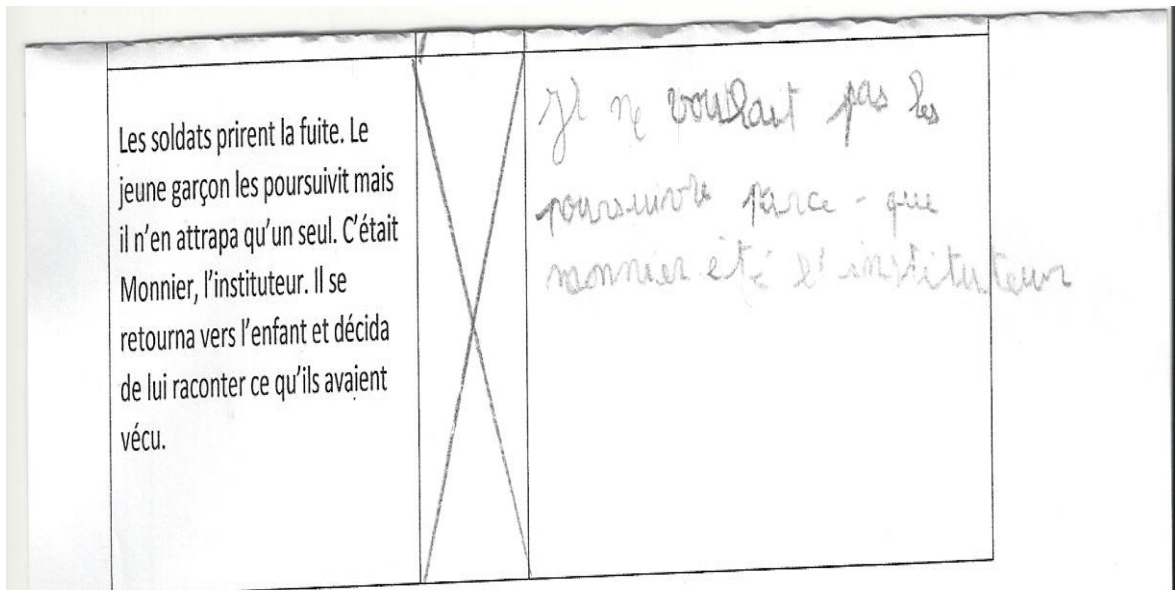 Les soldats prirent la fuite. Le
jeune garçon les poursuivit mais
il n'en attrapa qu'un seul. C'était
Monnier, l'instituteur. Il se
retourna vers l'enfant et décida
de lui raconter ce qu'ils avaient
vécu.
Il ne voulait pas les
poursuivre parce - que
monnier été l'instituteur